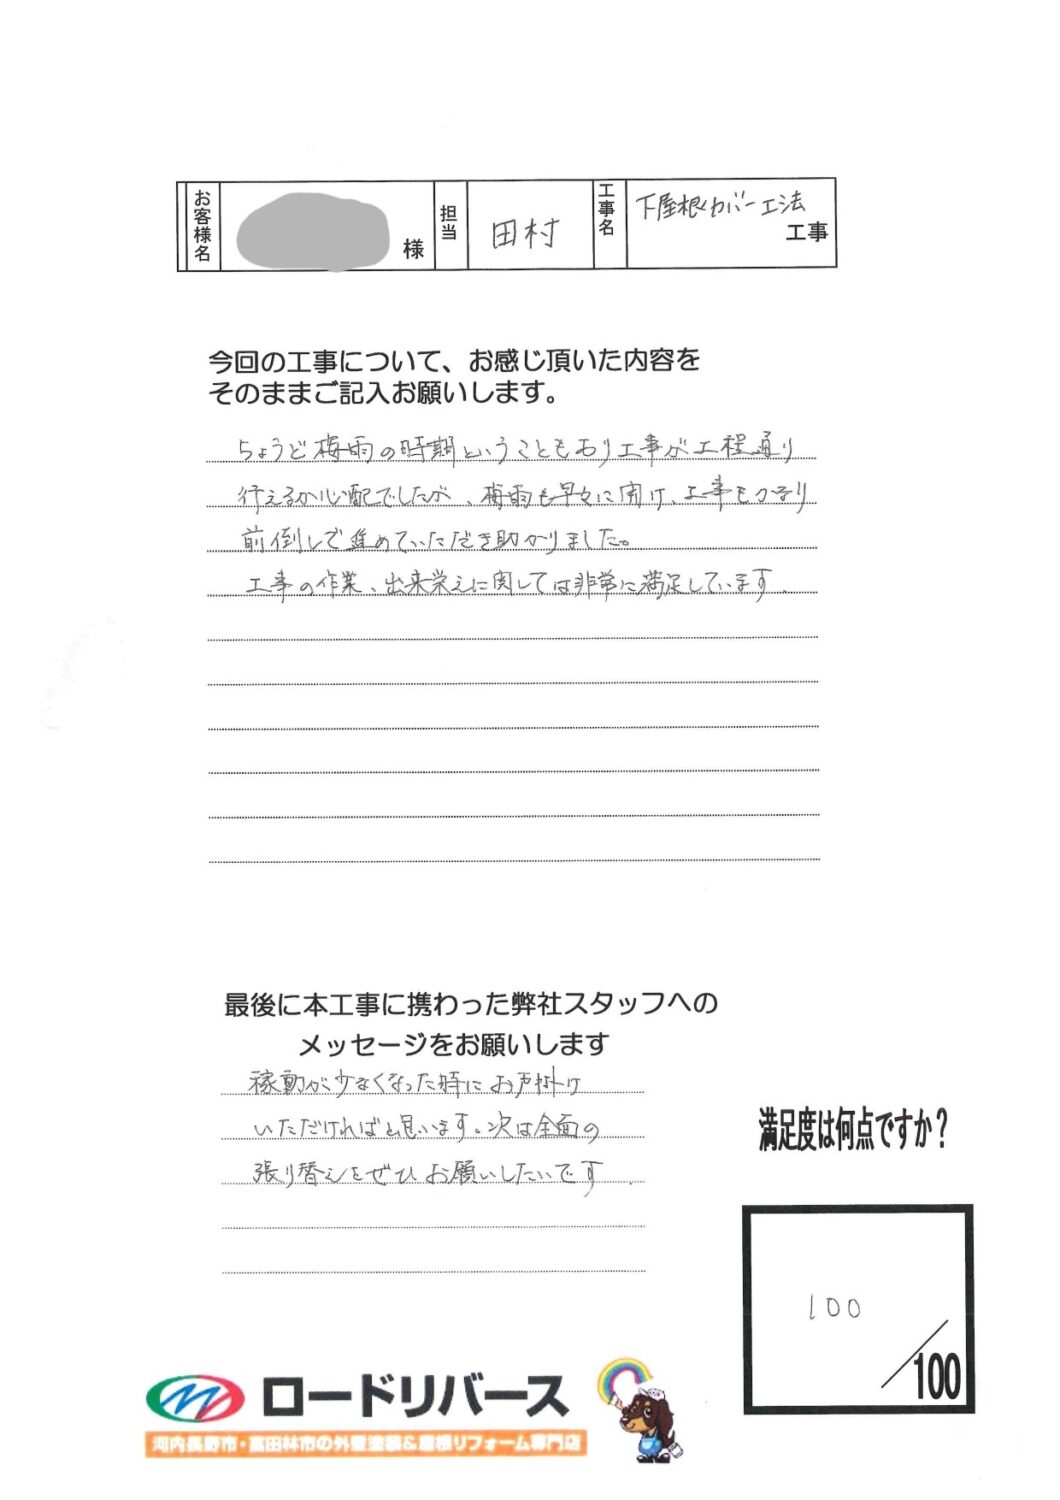 お客様名 様 担当 田村 工事名 下屋根カバー工法 工事
今回の工事について、お感じ頂いた内容を
そのままご記入お願いします。
ちょうど梅雨の時期ということもあり工事が工程通り
行えるか心配でしたが、梅雨も早々に開け、工事もかなり
前倒しで進めていただき助かりました。
工事の作業、出来栄えに関しては非常に満足しています。
最後に本工事に携わった弊社スタッフへの
メッセージをお願いします
稼動が少なくなった時にお声掛け
いただければと思います。次は全面の
張り替えをぜひお願いしたいです.
満足度は何点ですか?
100
/100
ロードリバース
河内長野市・富田林市の外壁塗装&屋根リフォーム専門店